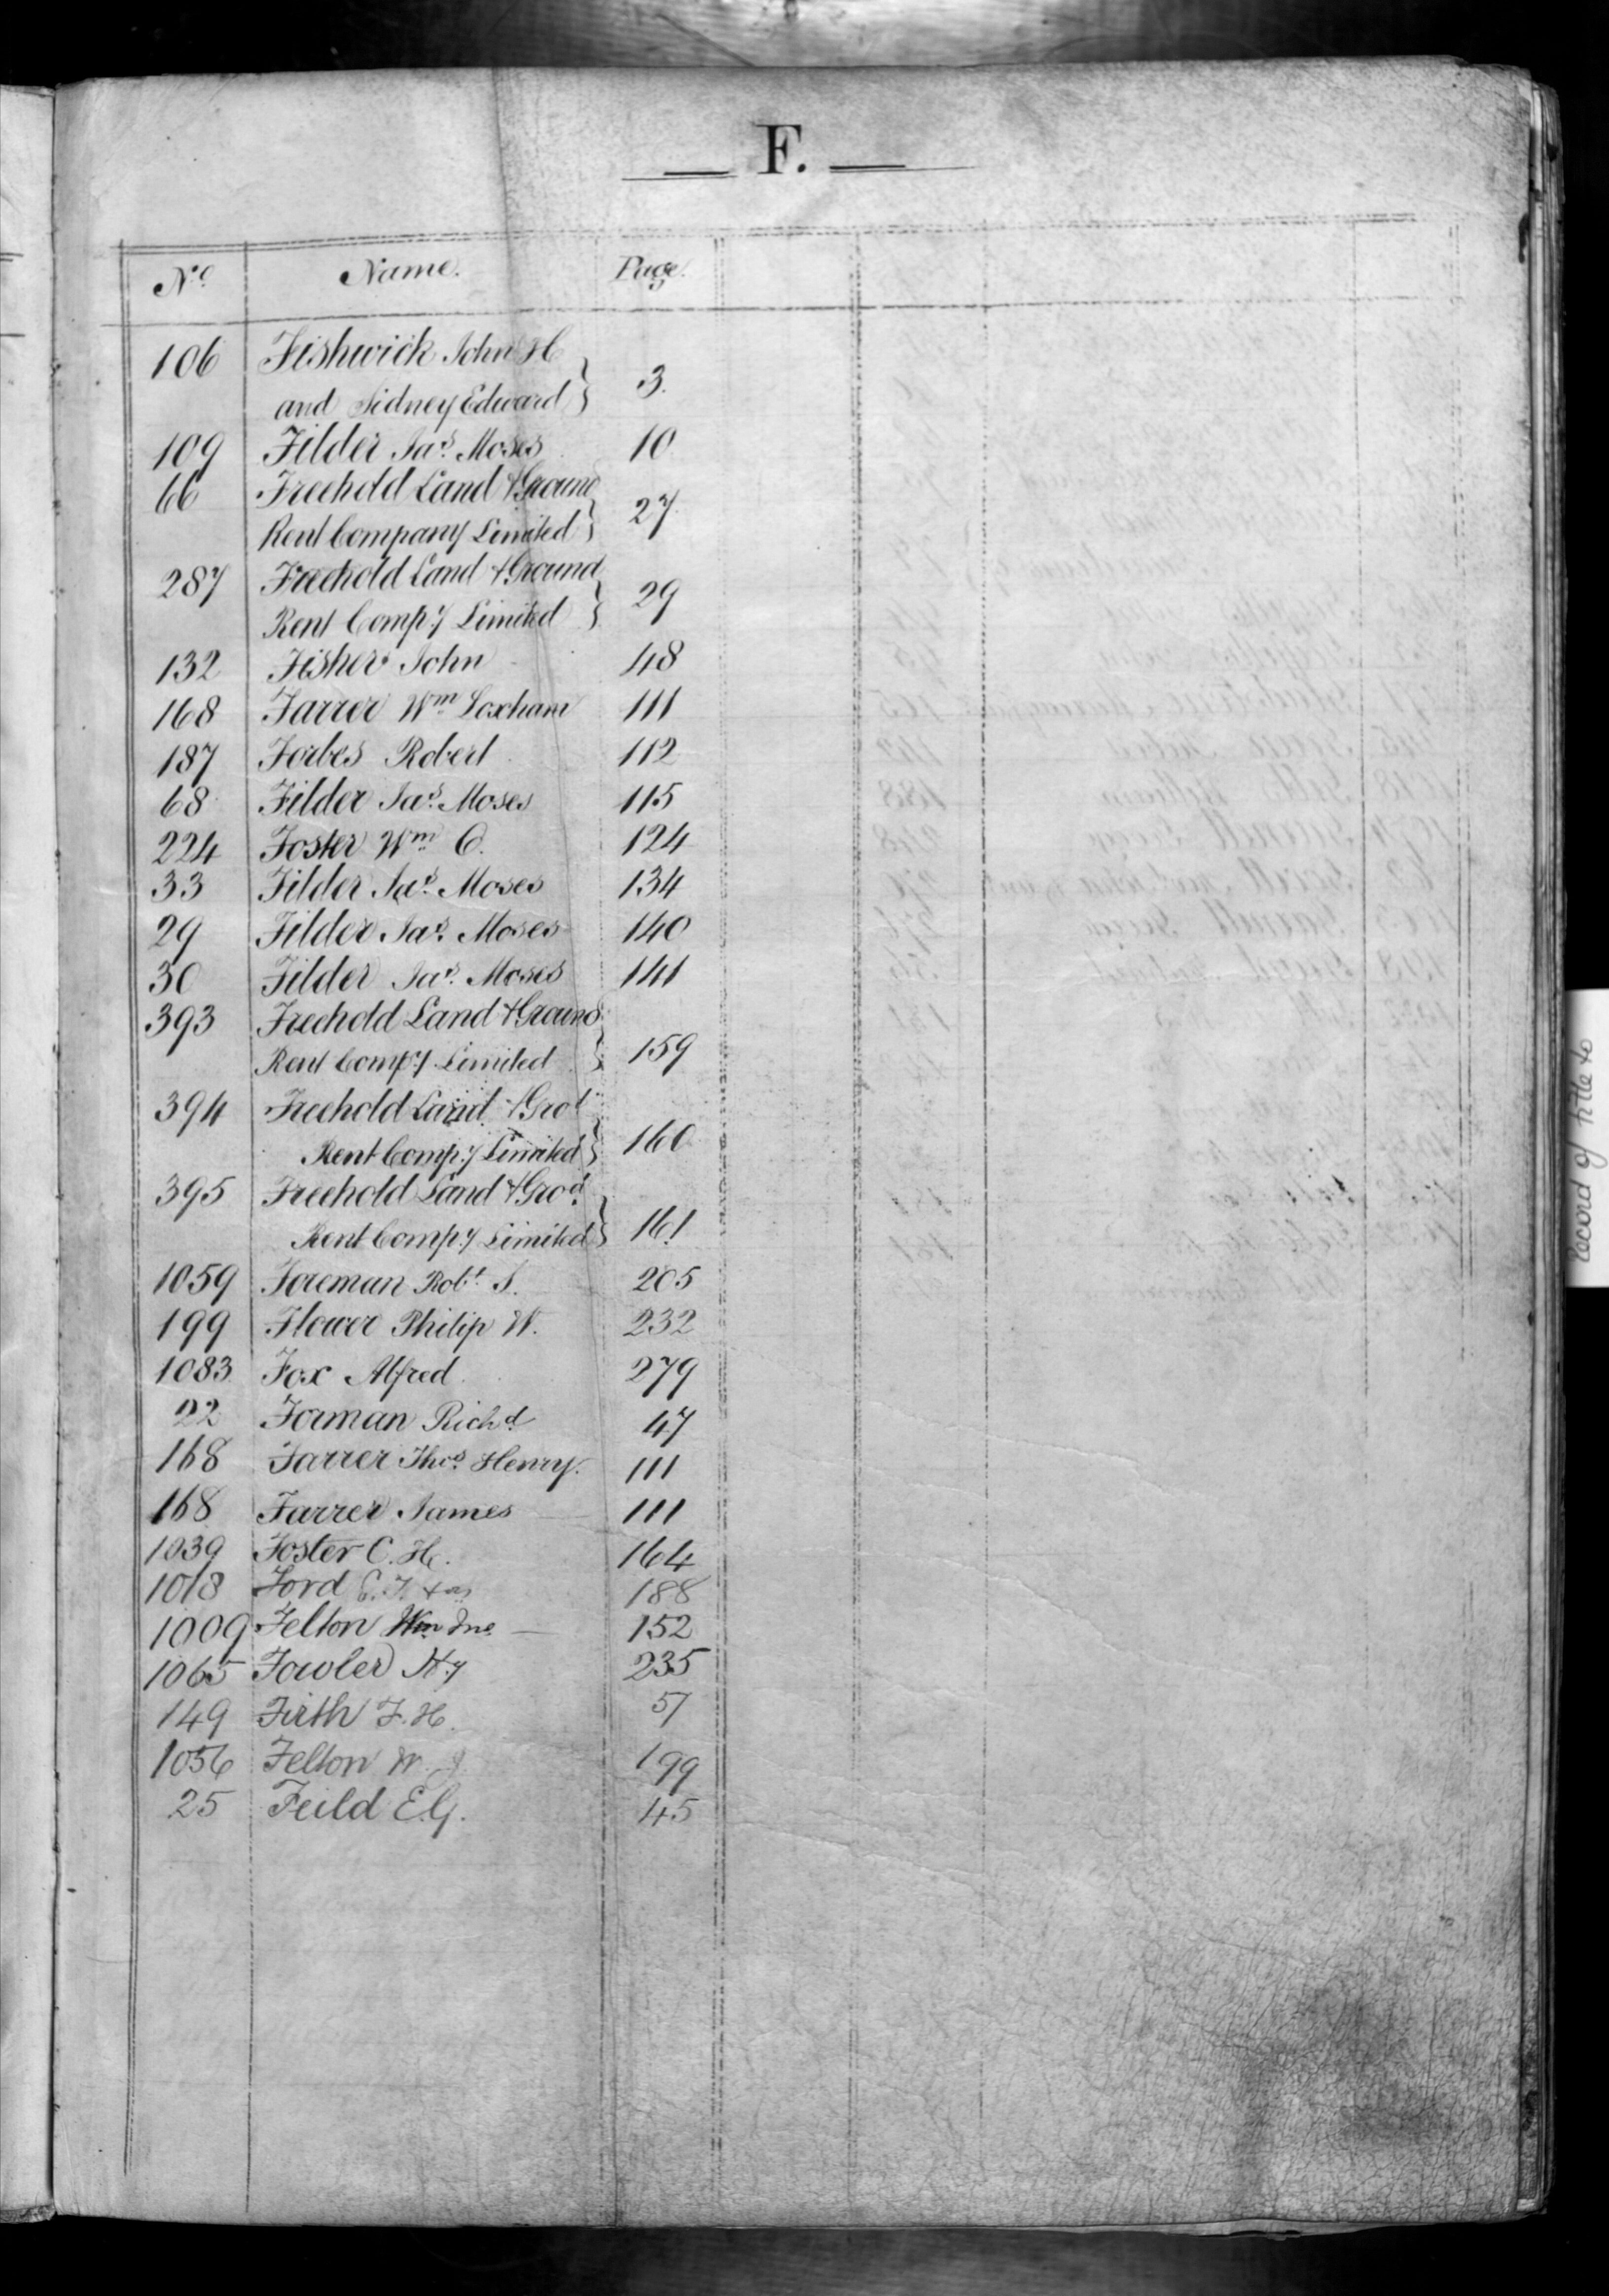 F.
No. Name. Page.
106 Fishwick John H
and Sidney Edward } 3.
109 Filder Jas. Moses 10
66 Freehold Land & Ground
Rent Company Limited } 27
287 Freehold Land & Ground
Rent Compy Limited } 29
132 Fisher John 48
168 Farrer Wm Loxham 111
187 Forbes Robert 112
68 Filder Jas. Moses 115
224 Foster Wm C. 124
33 Filder Jas. Moses 134
29 Filder Jas. Moses 140
30 Filder Jas. Moses 141
393 Freehold Land & Ground
Rent Compy Limited } 159
394 Freehold Land & Grod
Rent Compy Limited } 160
395 Freehold Land & Grod
Rent Compy Limited } 161
1059 Foreman Robt. S. 205
199 Flower Philip W. 232
1083 Fox Alfred 279
22 Forman Richd 47
168 Farrer Thos. Henry. 111
168 Farrer James 111
1039 Foster C. H. 164
1018 Ford 188
1009 Felton Wm Jno 152
1065 Fowler Hy 235
149 Firth F. H. 57
1056 Felton W. J. 199
25 Feild E.G. 45
Record of title to